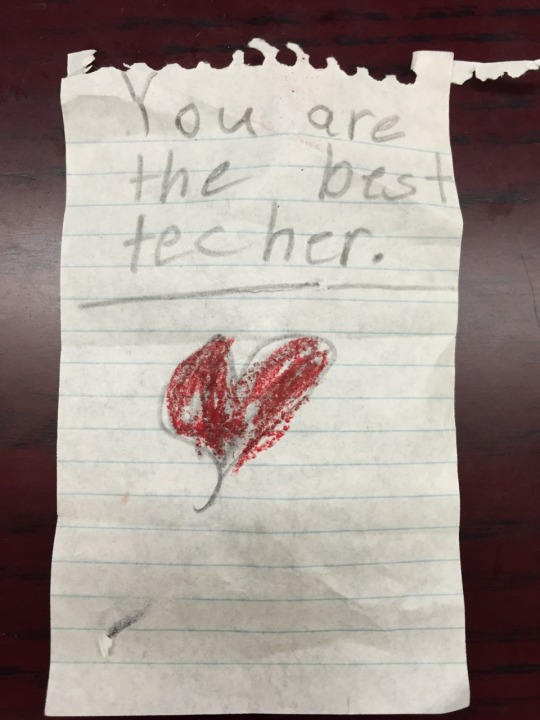 You are
the best
techer.